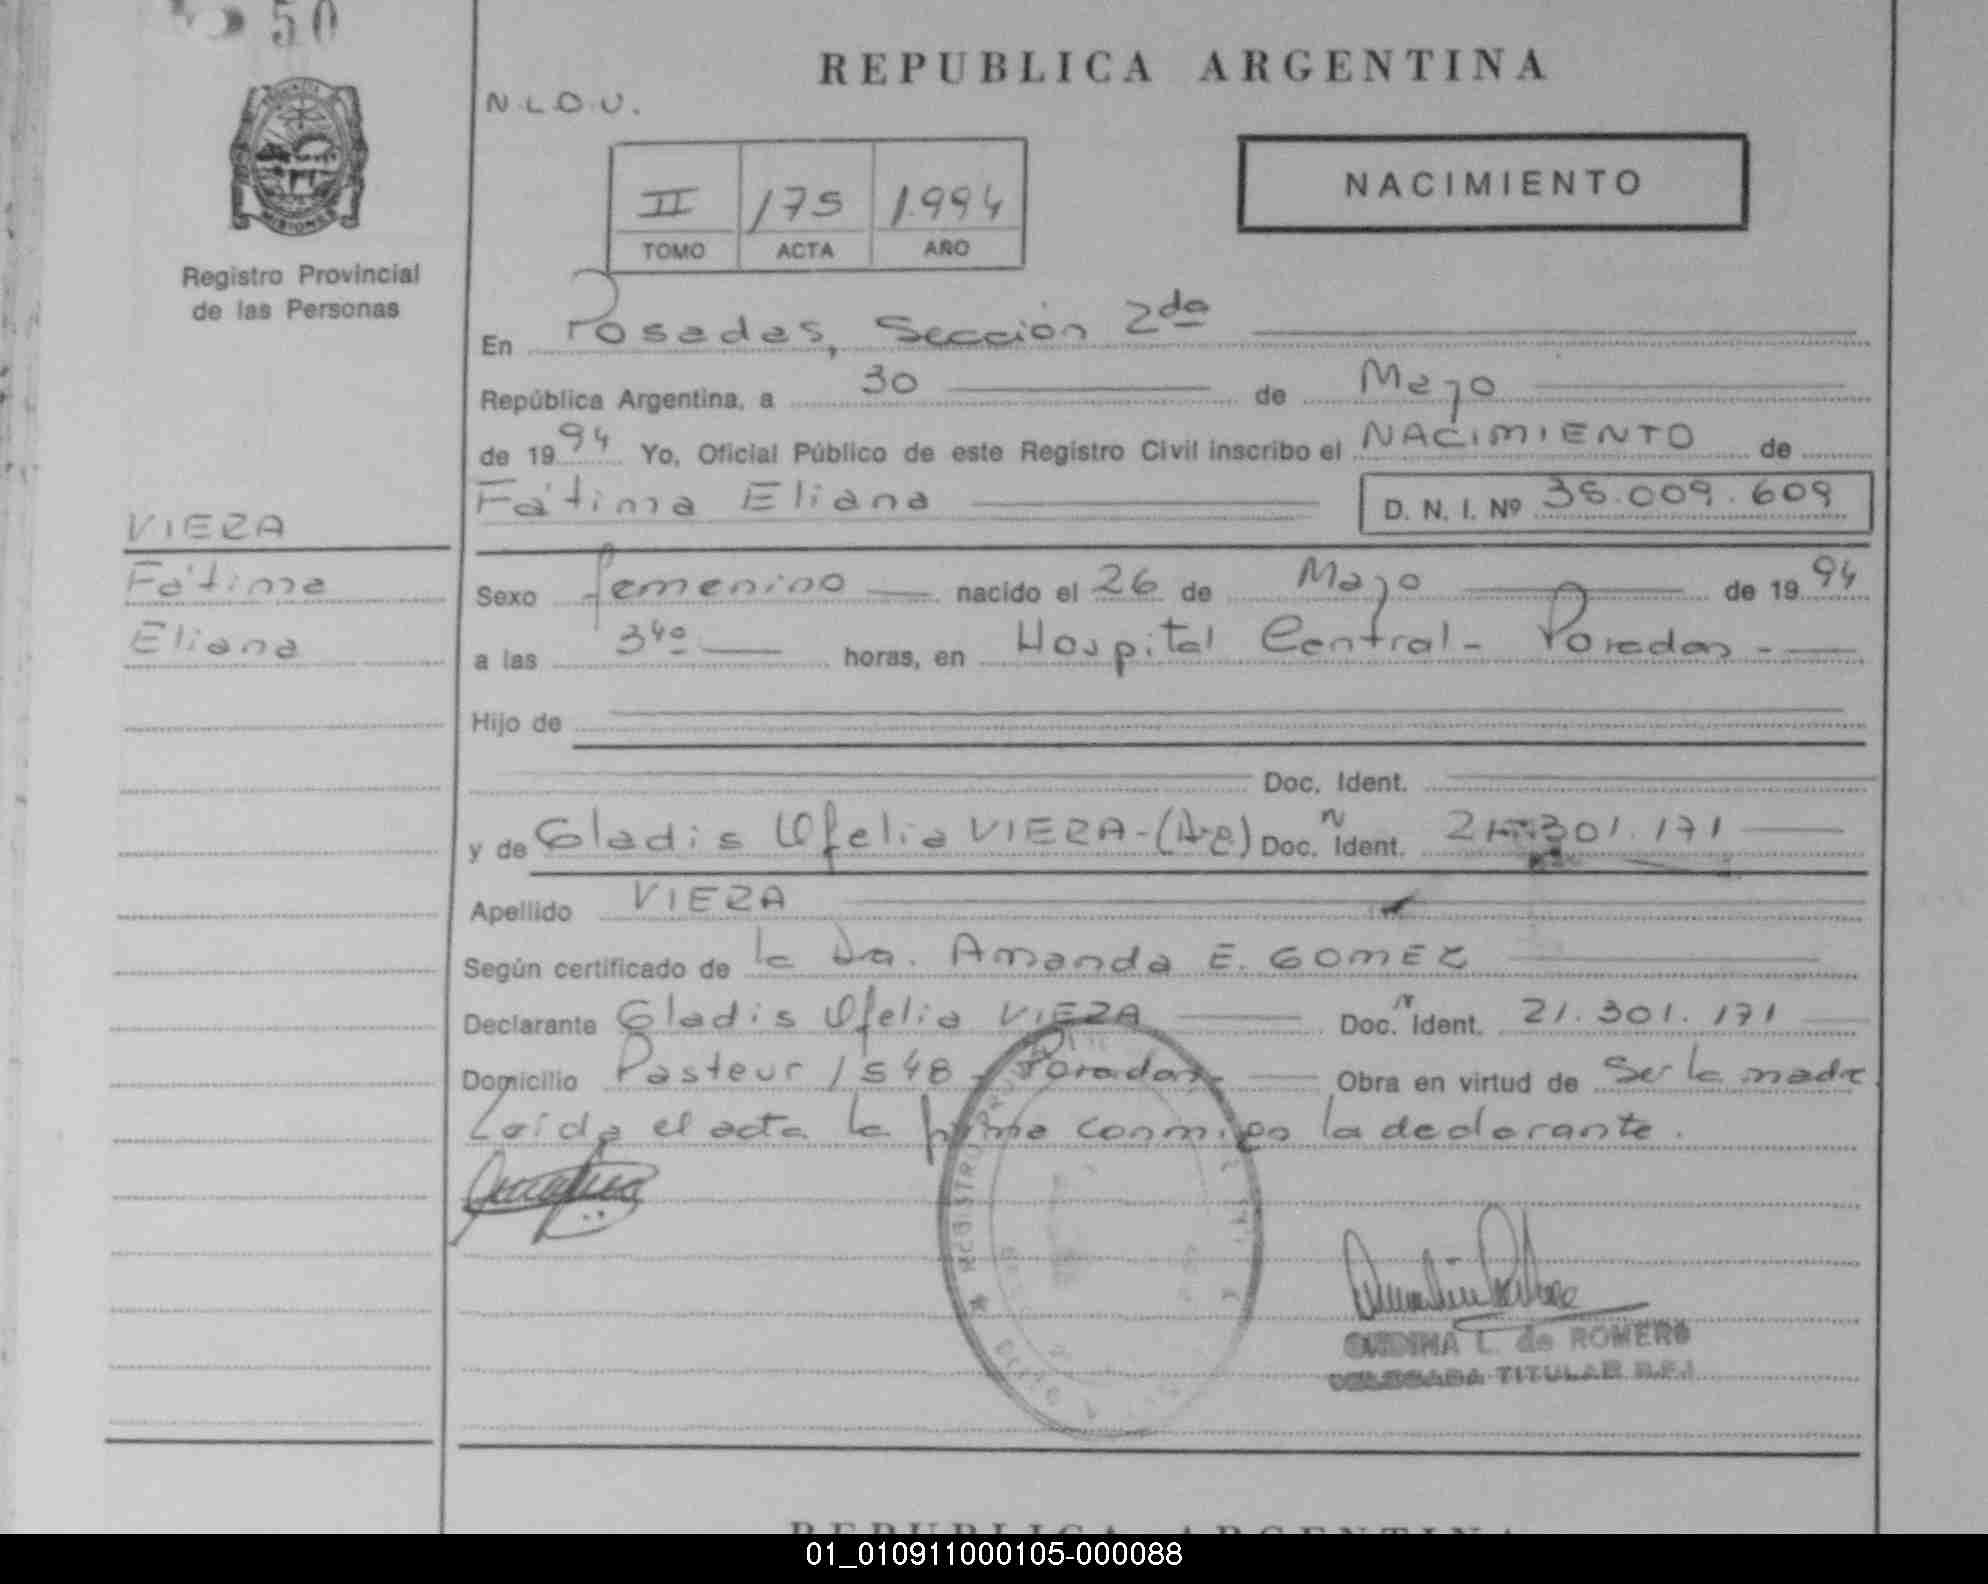 50
REPUBLICA ARGENTINA
N.L.O.U.
II 175 1.994
TOMO ACTA AÑO
NACIMIENTO
Registro Provincial
de las Personas
En Posadas, Sección 2da
República Argentina, a 30 de Mayo
de 1994 Yo, Oficial Público de este Registro Civil inscribo el NACIMIENTO de
Fátima Eliana D. N. I. Nº 38.009.609
VIERA
Fátima
Eliana
Sexo femenino nacido el 26 de Mayo de 1994
a las 340 horas, en Hospital Central - Posadas -
Hijo de
Doc. Ident.
y de Gladis Ofelia VIERA - (Arg) Doc. N Ident. 21.301.171
Apellido VIERA
Según certificado de la Dra. Amanda E. GOMEZ
Declarante Gladis Ofelia VIERA Doc. N Ident. 21.301.171
Domicilio Pasteur 1548 - Posadas - Obra en virtud de Ser la madre
Leída el acta la firma conmigo la declarante.
REGISTRO PRO
L. de ROMERO
DELEGADA TITULAR
REPUBLICA ARGENTINA
01_010911000105-000088